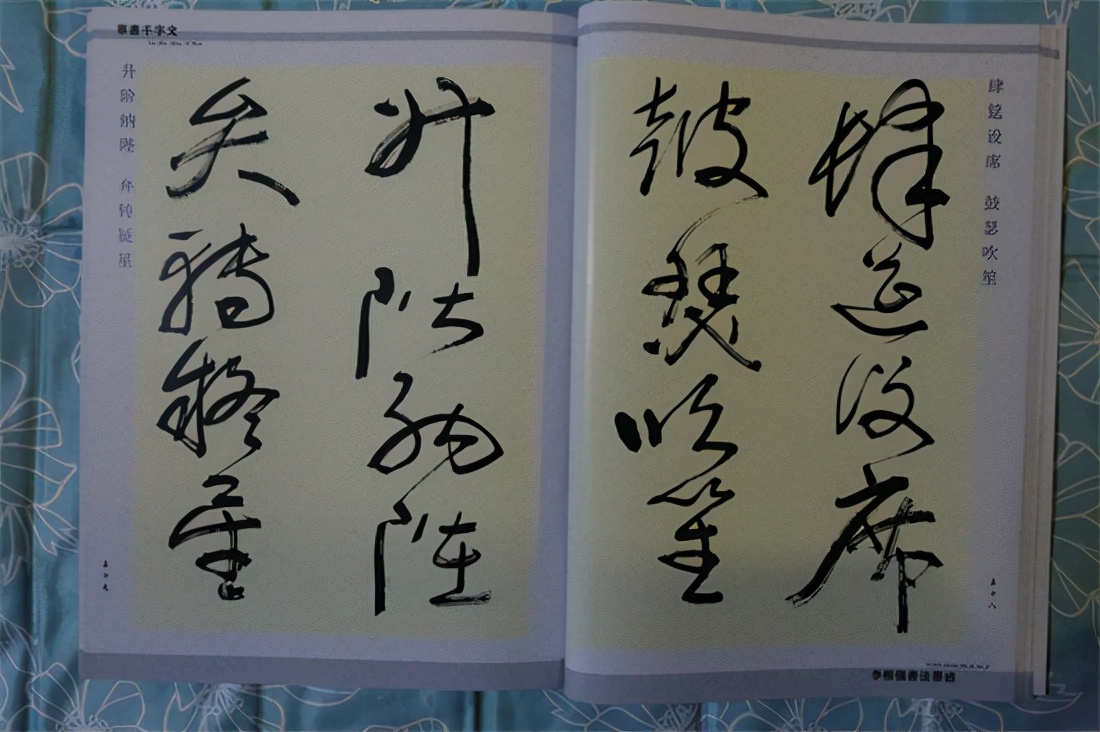 肆筵设席 鼓瑟吹笙
肆筵設席
鼓瑟吹笙
五十八
草書千字文
升阶纳陛 弁转疑星
升階納陛
弁轉疑星
五十九